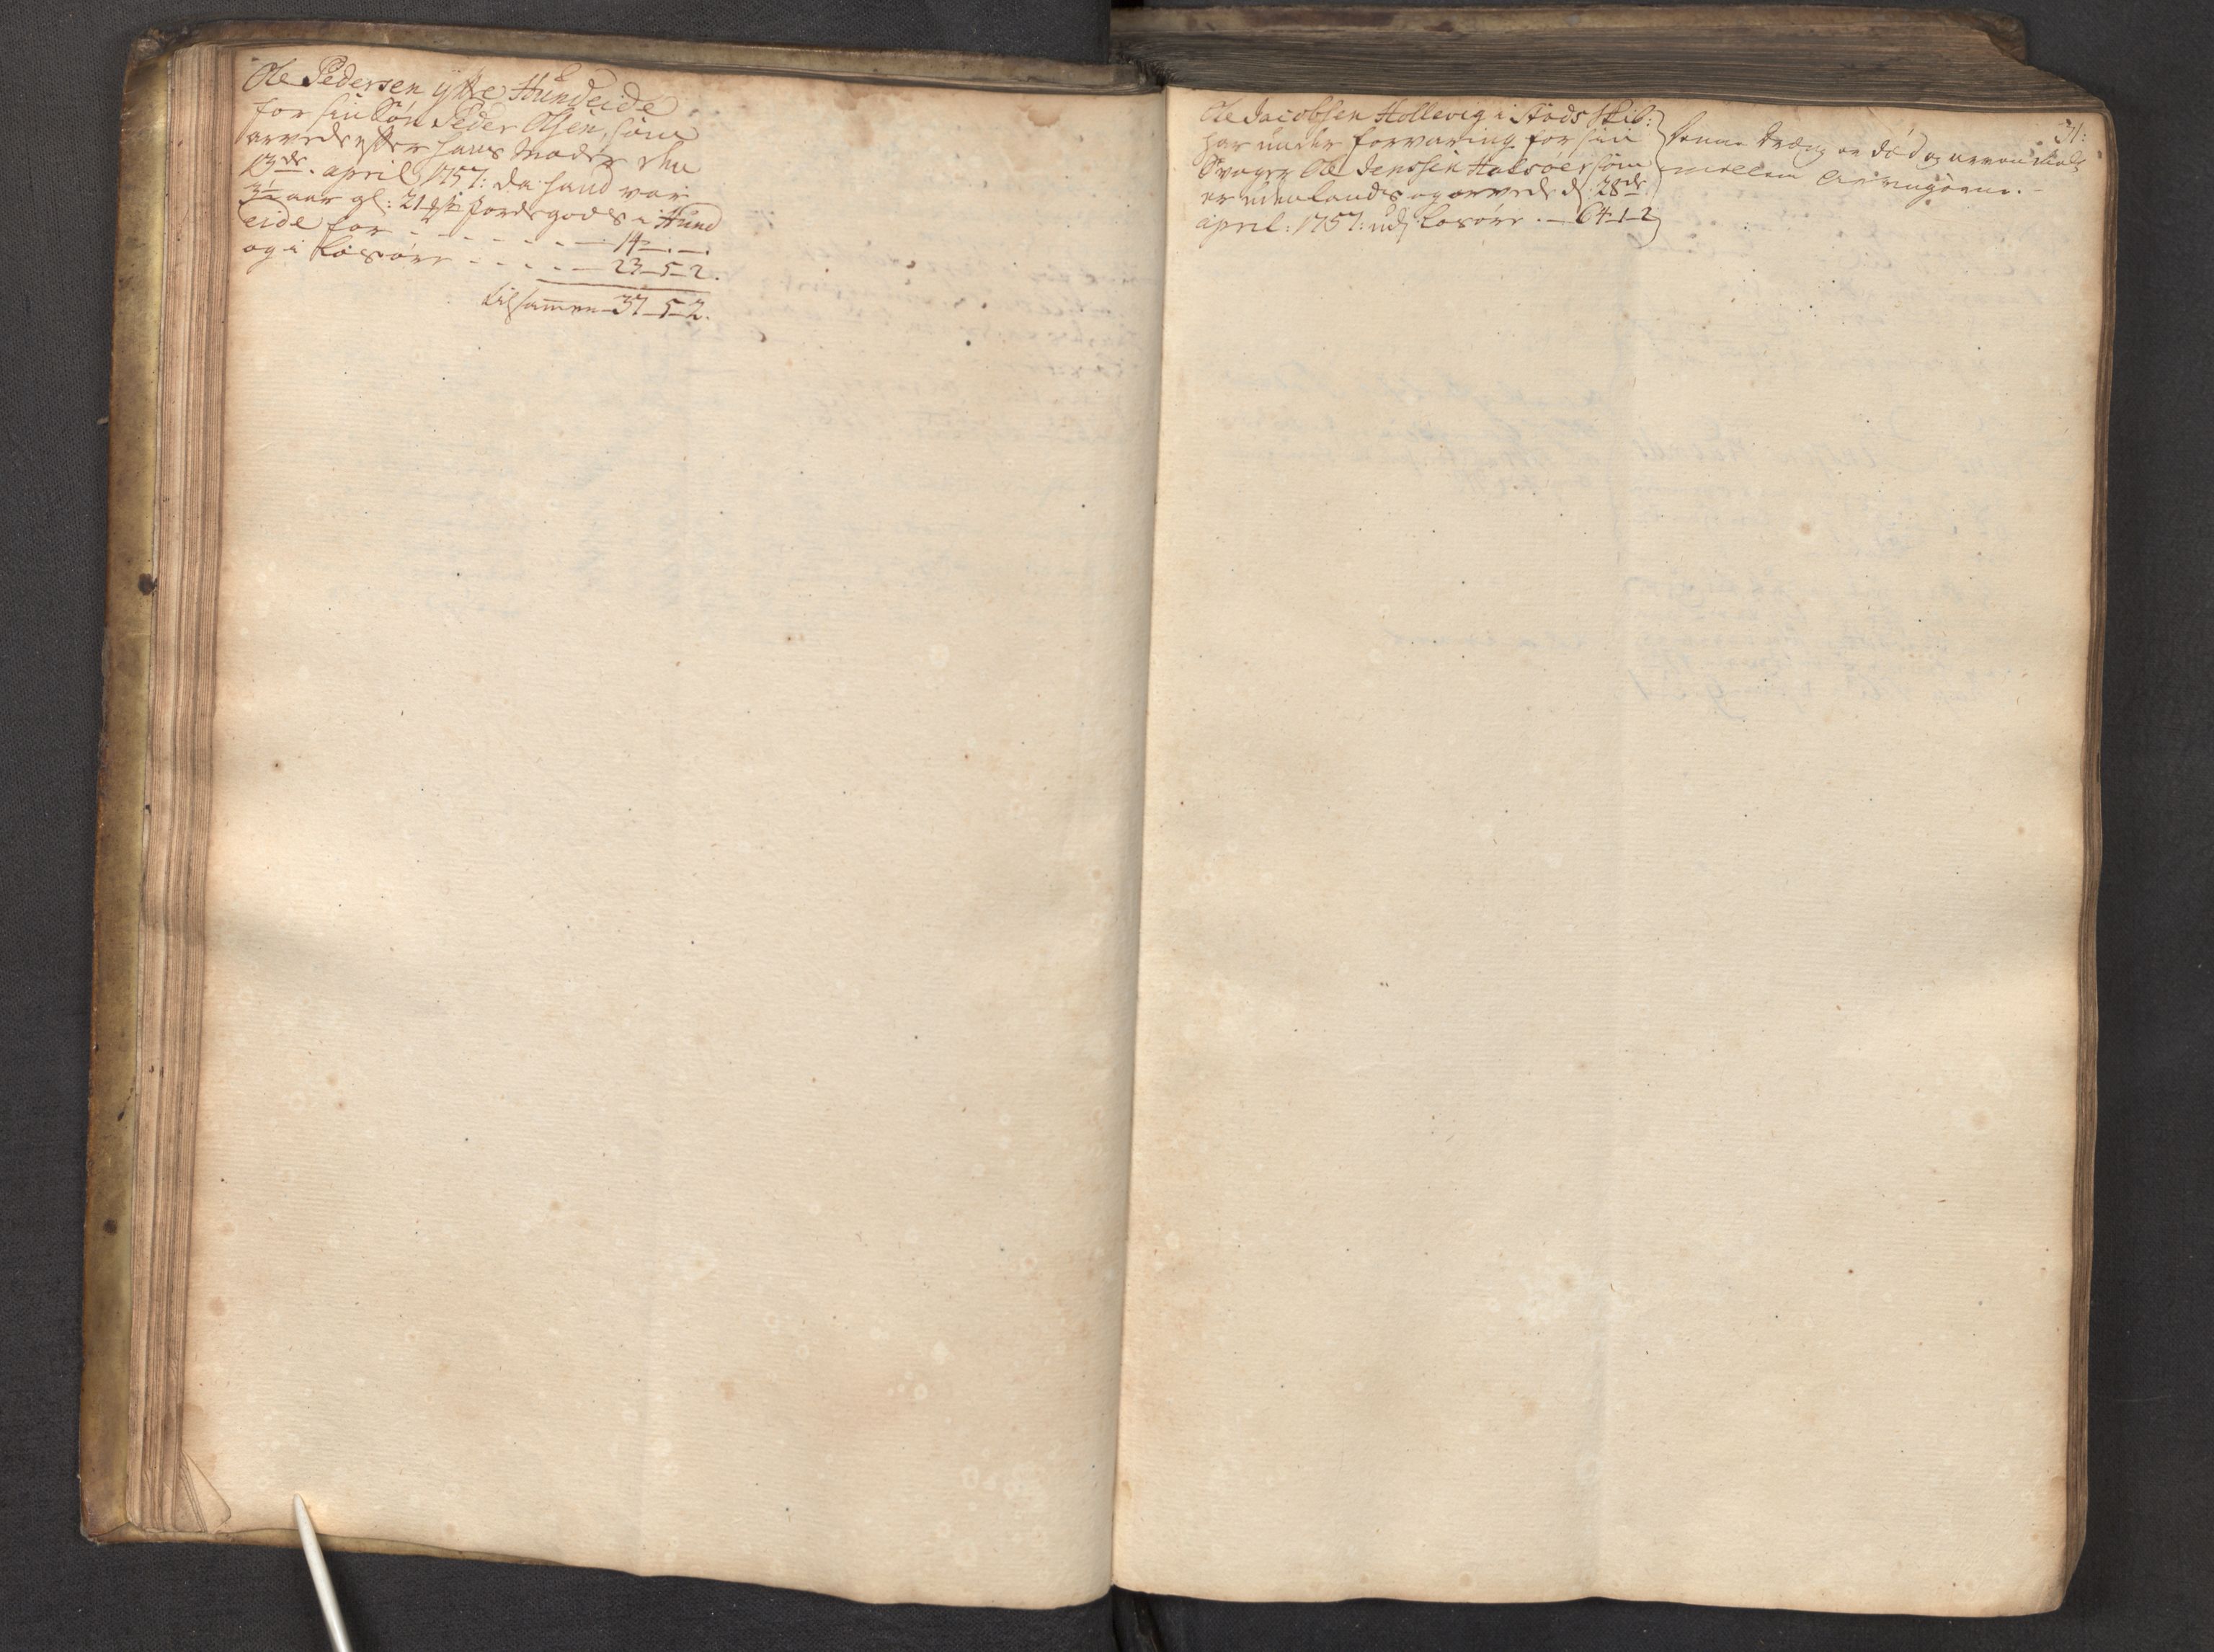 Ole Pedersen yttre Hundeide
for sin Søn Peder Olsen, som
arvede efter hans Moder den
13de. april 1757: da hand var
3½ aar gl: 21 jordegods i Hund
eide for - - - - - - 14 - . - .
og i Løsøre - - - - - 23 - 5 - 2.
tilsammen - 37 - 5 - 2.
31:
Ole Jacobsen Hollevig i Stads Skib:
har under forvaring for sin
Svoger Ole Jenssen som
er udenlands og arvede d: 28de
april: 1757: udj Løsøre. - 64 - 1 - 2
denne Dræng er død og arven
mellem Arvingerne. -